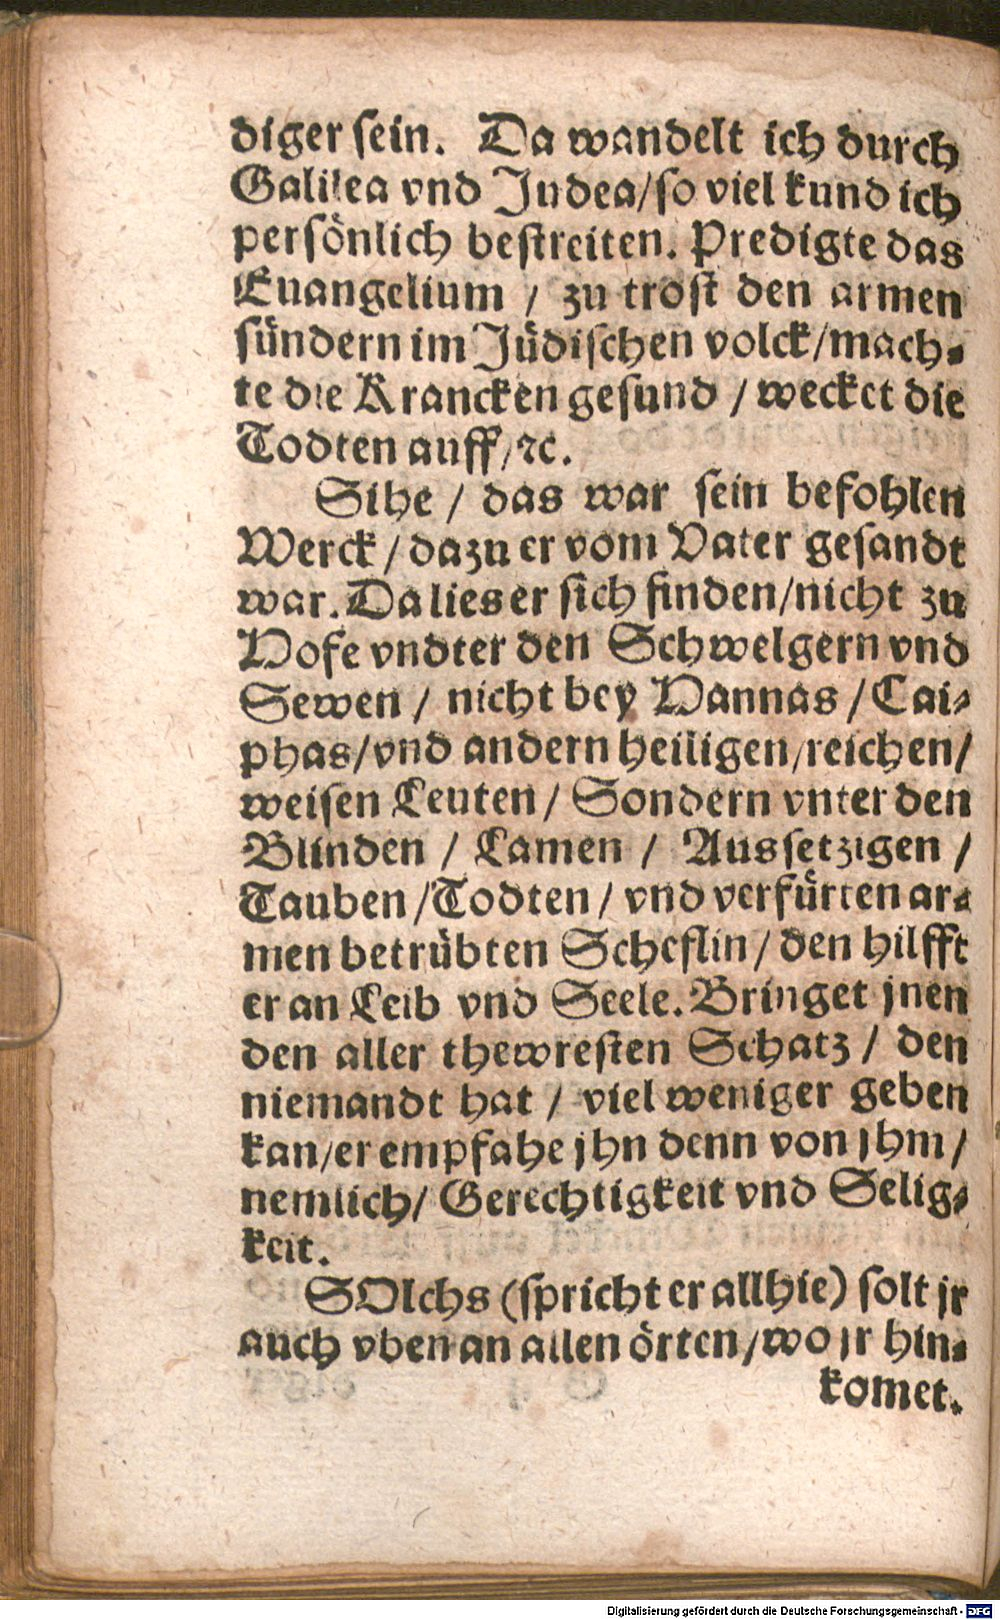 diger sein. Da wandelt ich durch
Galilea vnd Judea/so viel kund ich
persönlich bestreiten. Predigte das
Euangelium / zu trost den armen
sündern im Jüdischen volck/mach-
te die Krancken gesund / wecket die
Todten auff/ꝛc.
Sihe / das war sein befohlen
Werck / dazu er vom Vater gesandt
war. Da lies er sich finden/nicht zu
Hofe vndter den Schwelgern vnd
Sewen / nicht bey Hannas / Cai-
phas/vnd andern heiligen/reichen/
weisen Leuten / Sondern vnter den
Blinden / Lamen / Aussetzigen /
Tauben /Todten / vnd verfürten ar-
men betrübten Scheflin / den hilfft
er an Leib vnd Seele. Bringet jnen
den aller thewresten Schatz / den
niemandt hat / viel weniger geben
kan/er empfahe jhn denn von jhm /
nemlich/ Gerechtigkeit vnd Selig-
keit.
SOlchs (spricht er allhie) solt jr
auch vben an allen örten/wo jr hin-
komet.
Digitalisierung gefördert durch die Deutsche Forschungsgemeinschaft - DFG